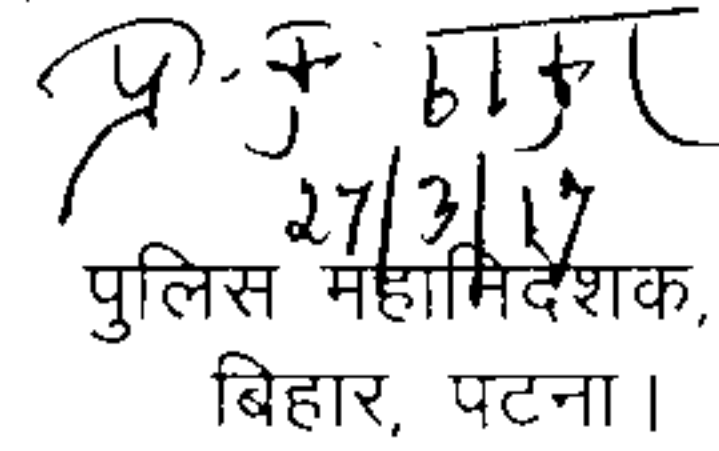 27/3/17
पुलिस महानिदेशक,
बिहार, पटना।